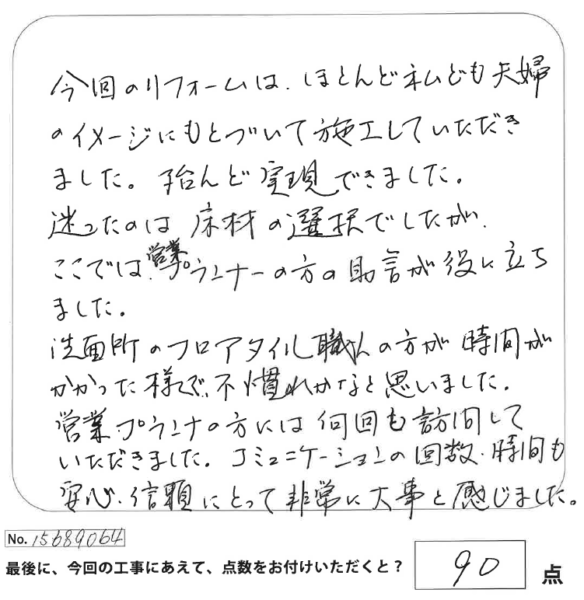 今回のリフォームは、ほとんど私ども夫婦
のイメージにもとづいて施工していただき
ました。殆んど実現できました。
迷ったのは床材の選択でしたが、
ここでは、営業プランナーの方の助言が役に立ち
ました。
洗面所のフロアタイル職人の方が時間が
かかった様で、不慣れかなと思いました。
営業プランナの方には何回も訪問して
いただきました。コミュニケーションの回数、時間も
安心、信頼にとって非常に大事と感じました。
No. 15689064
最後に、今回の工事にあえて、点数をお付けいただくと？ 90 点